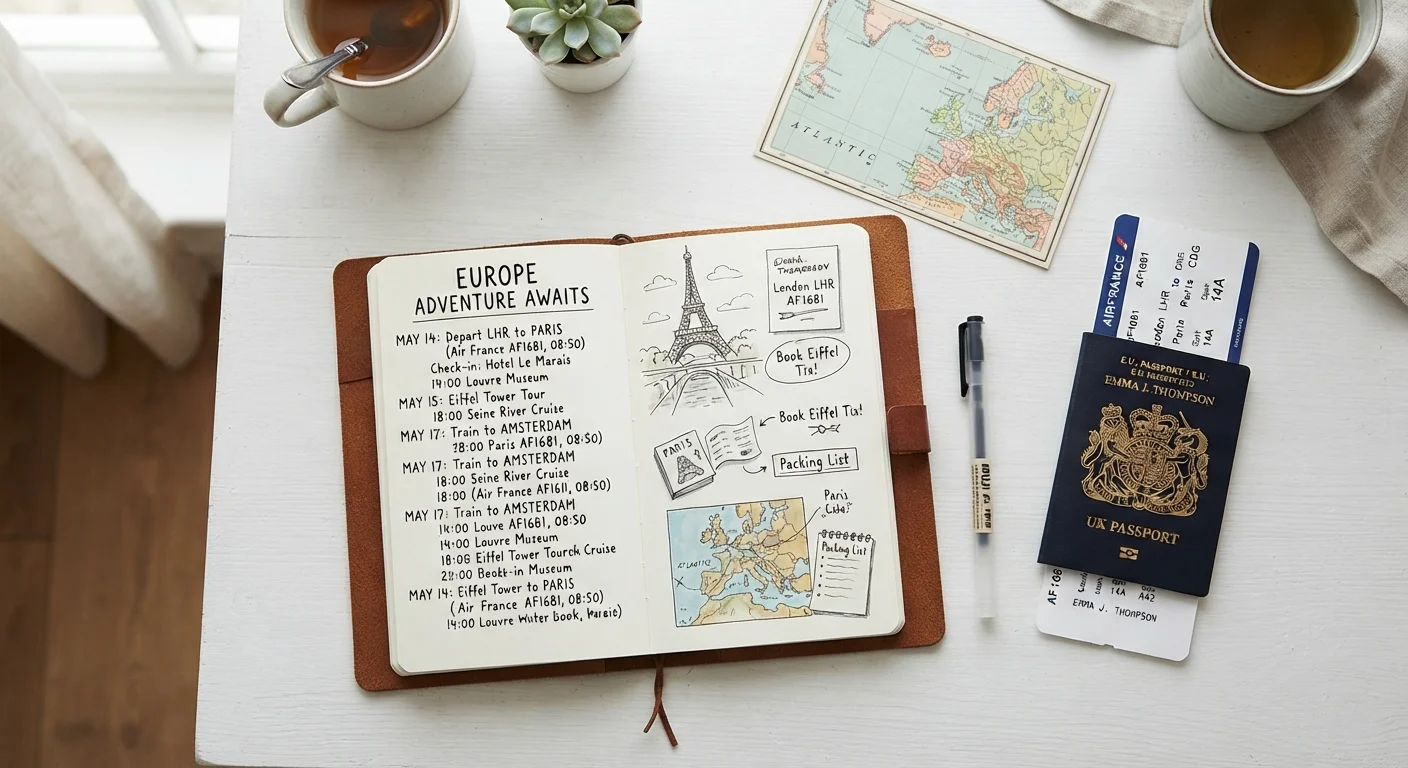 EUROPE
ADVENTURE AWAITS
MAY 14: Depart LHR to PARIS
(Air France AF1681, 08:50)
Check-in: Hotel Le Marais
14:00 Louvre Museum
MAY 15: Eiffel Tower Tour
18:00 Seine River Cruise
MAY 17: Train to AMSTERDAM
28:00 Paris AF1681, 08:50)
MAY 17: Train to AMSTERDAM
18:00 Seine River Cruise
18:00 (Air France AF1611, 08:50)
MAY 17: Train to AMSTERDAM
14:00 Louve AF1681, 08:50
14:00 Louvre Museum
18:06 Eiffel Tower Tourch Cruise
Beokt-in Museum
MAY 14: Eiffel Tower to PARIS
(Air France AF1681, 08:50)
14:00 Louvre Water book,
THOMPSON
London LHR
AF1681
Book Eiffel
Tix!
Book Eiffel Tix!
PARIS
Packing List
Paris
ATLANTIC
Packing List
ATLANTIC
AIRFRANCE
AF1681
London LHR to
Paris CDG
14A
14A
EMMA J. THONPSON
UK PASSPORT
14A A42
EMMA J. THOMPSON